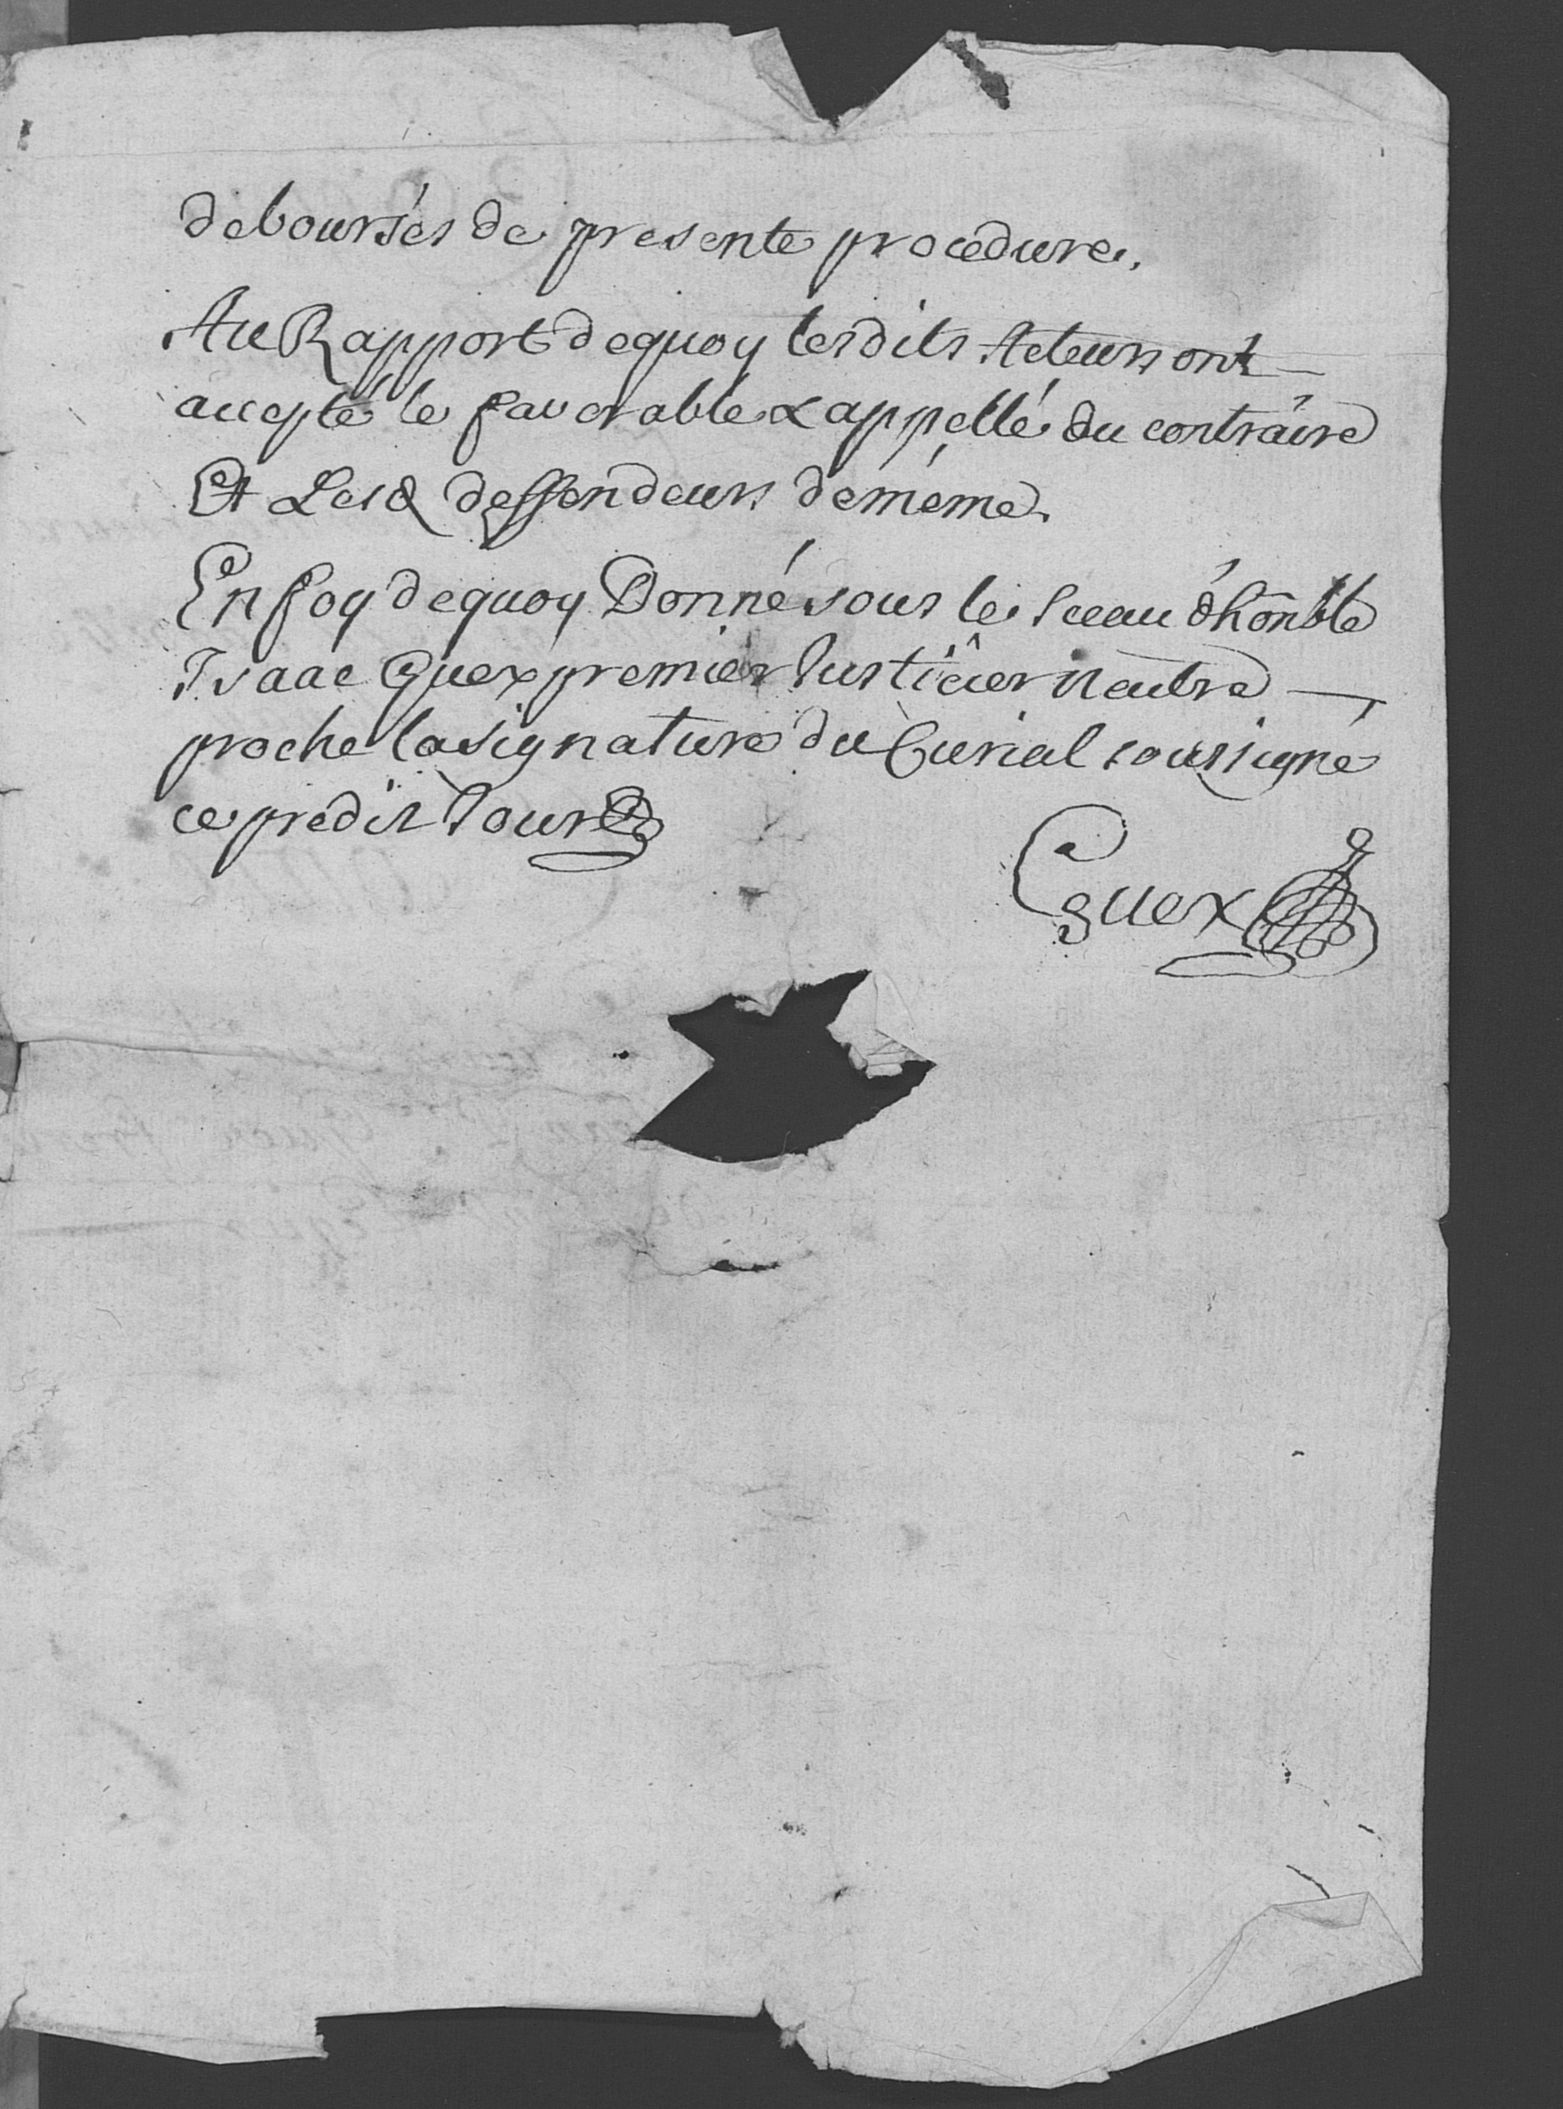 deboursés de presente procedure.
Au Rapport dequoy lesdits Acteurs ont
accepté le favorable & appellé du contraire
Et Lesd deffendeurs de méme.
En foy dequoy Donné sous le Sceau d'honble
Isaac Guex premier Justicier neutre
proche la signature du Curial soussigné
ce predit Jour
Guex